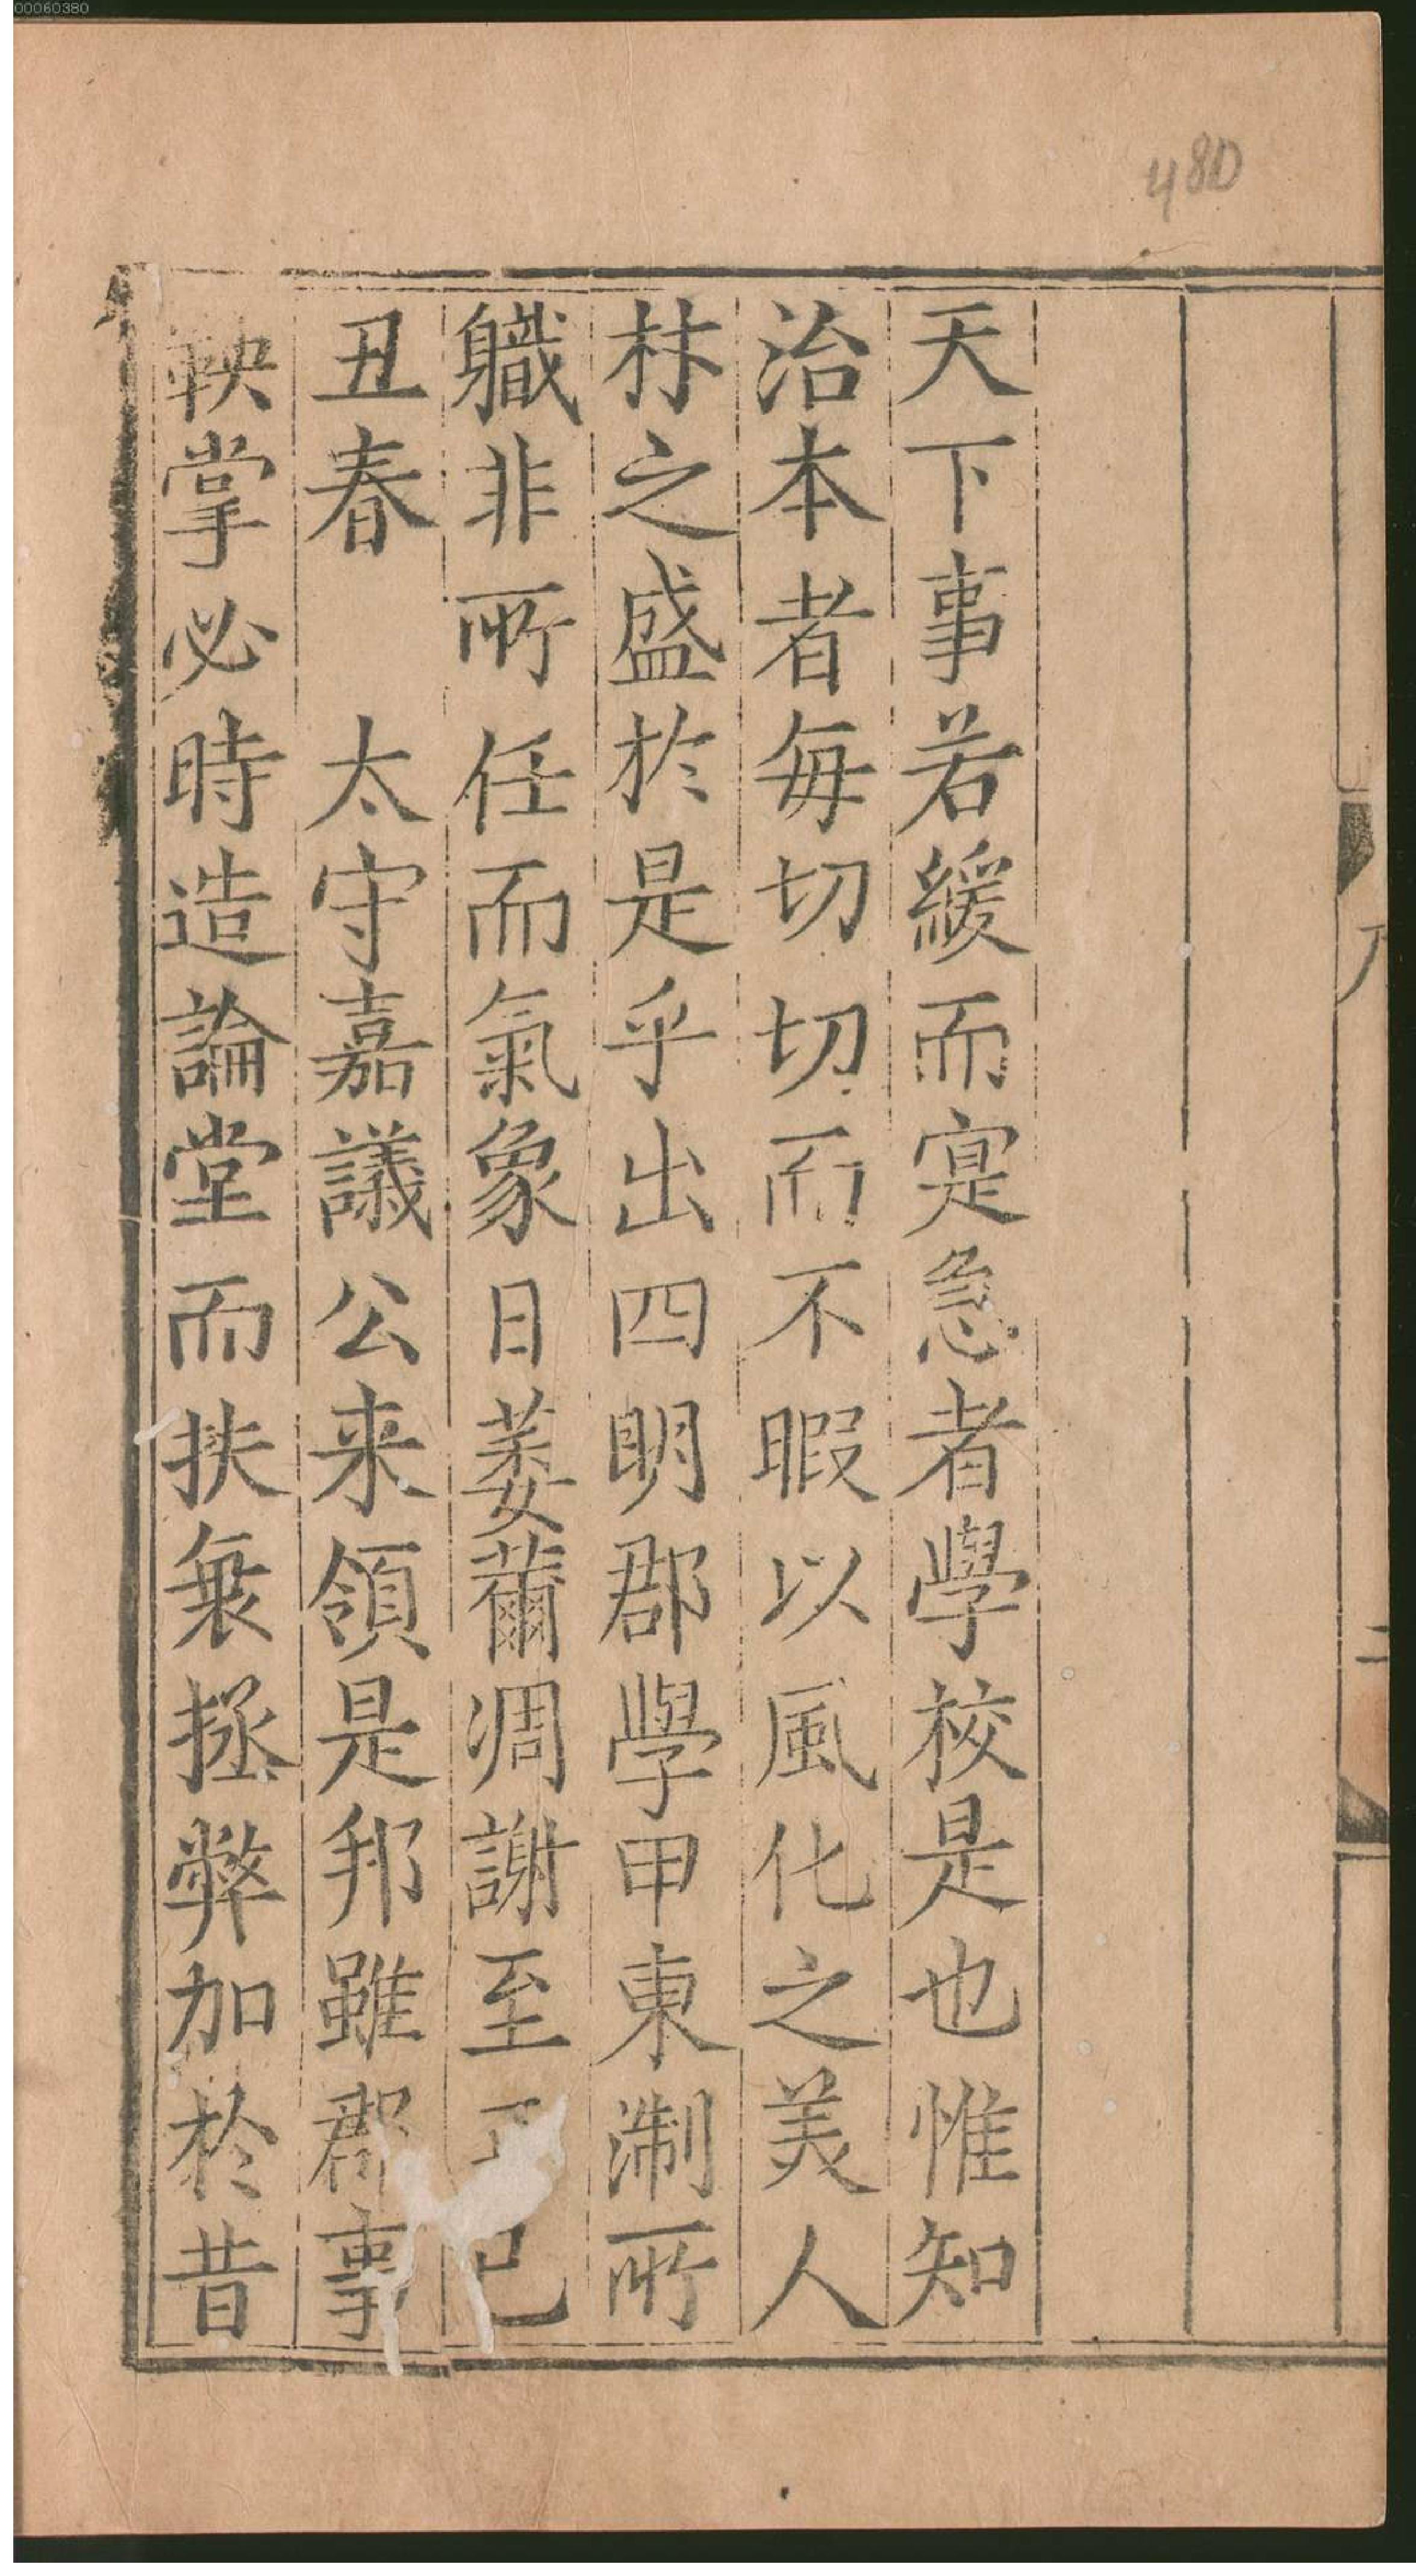 00060380
480
天下事若緩而寔急者學校是也惟知
治本者每切切而不暇以風化之美人
材之盛於是乎出四明郡學甲東淛所
軄非所任而氣象日萎薾凋謝至丁巳
丑春 太守嘉議公来領是邦雖郡事
鞅掌必時造論堂而扶衰拯弊加於昔
二